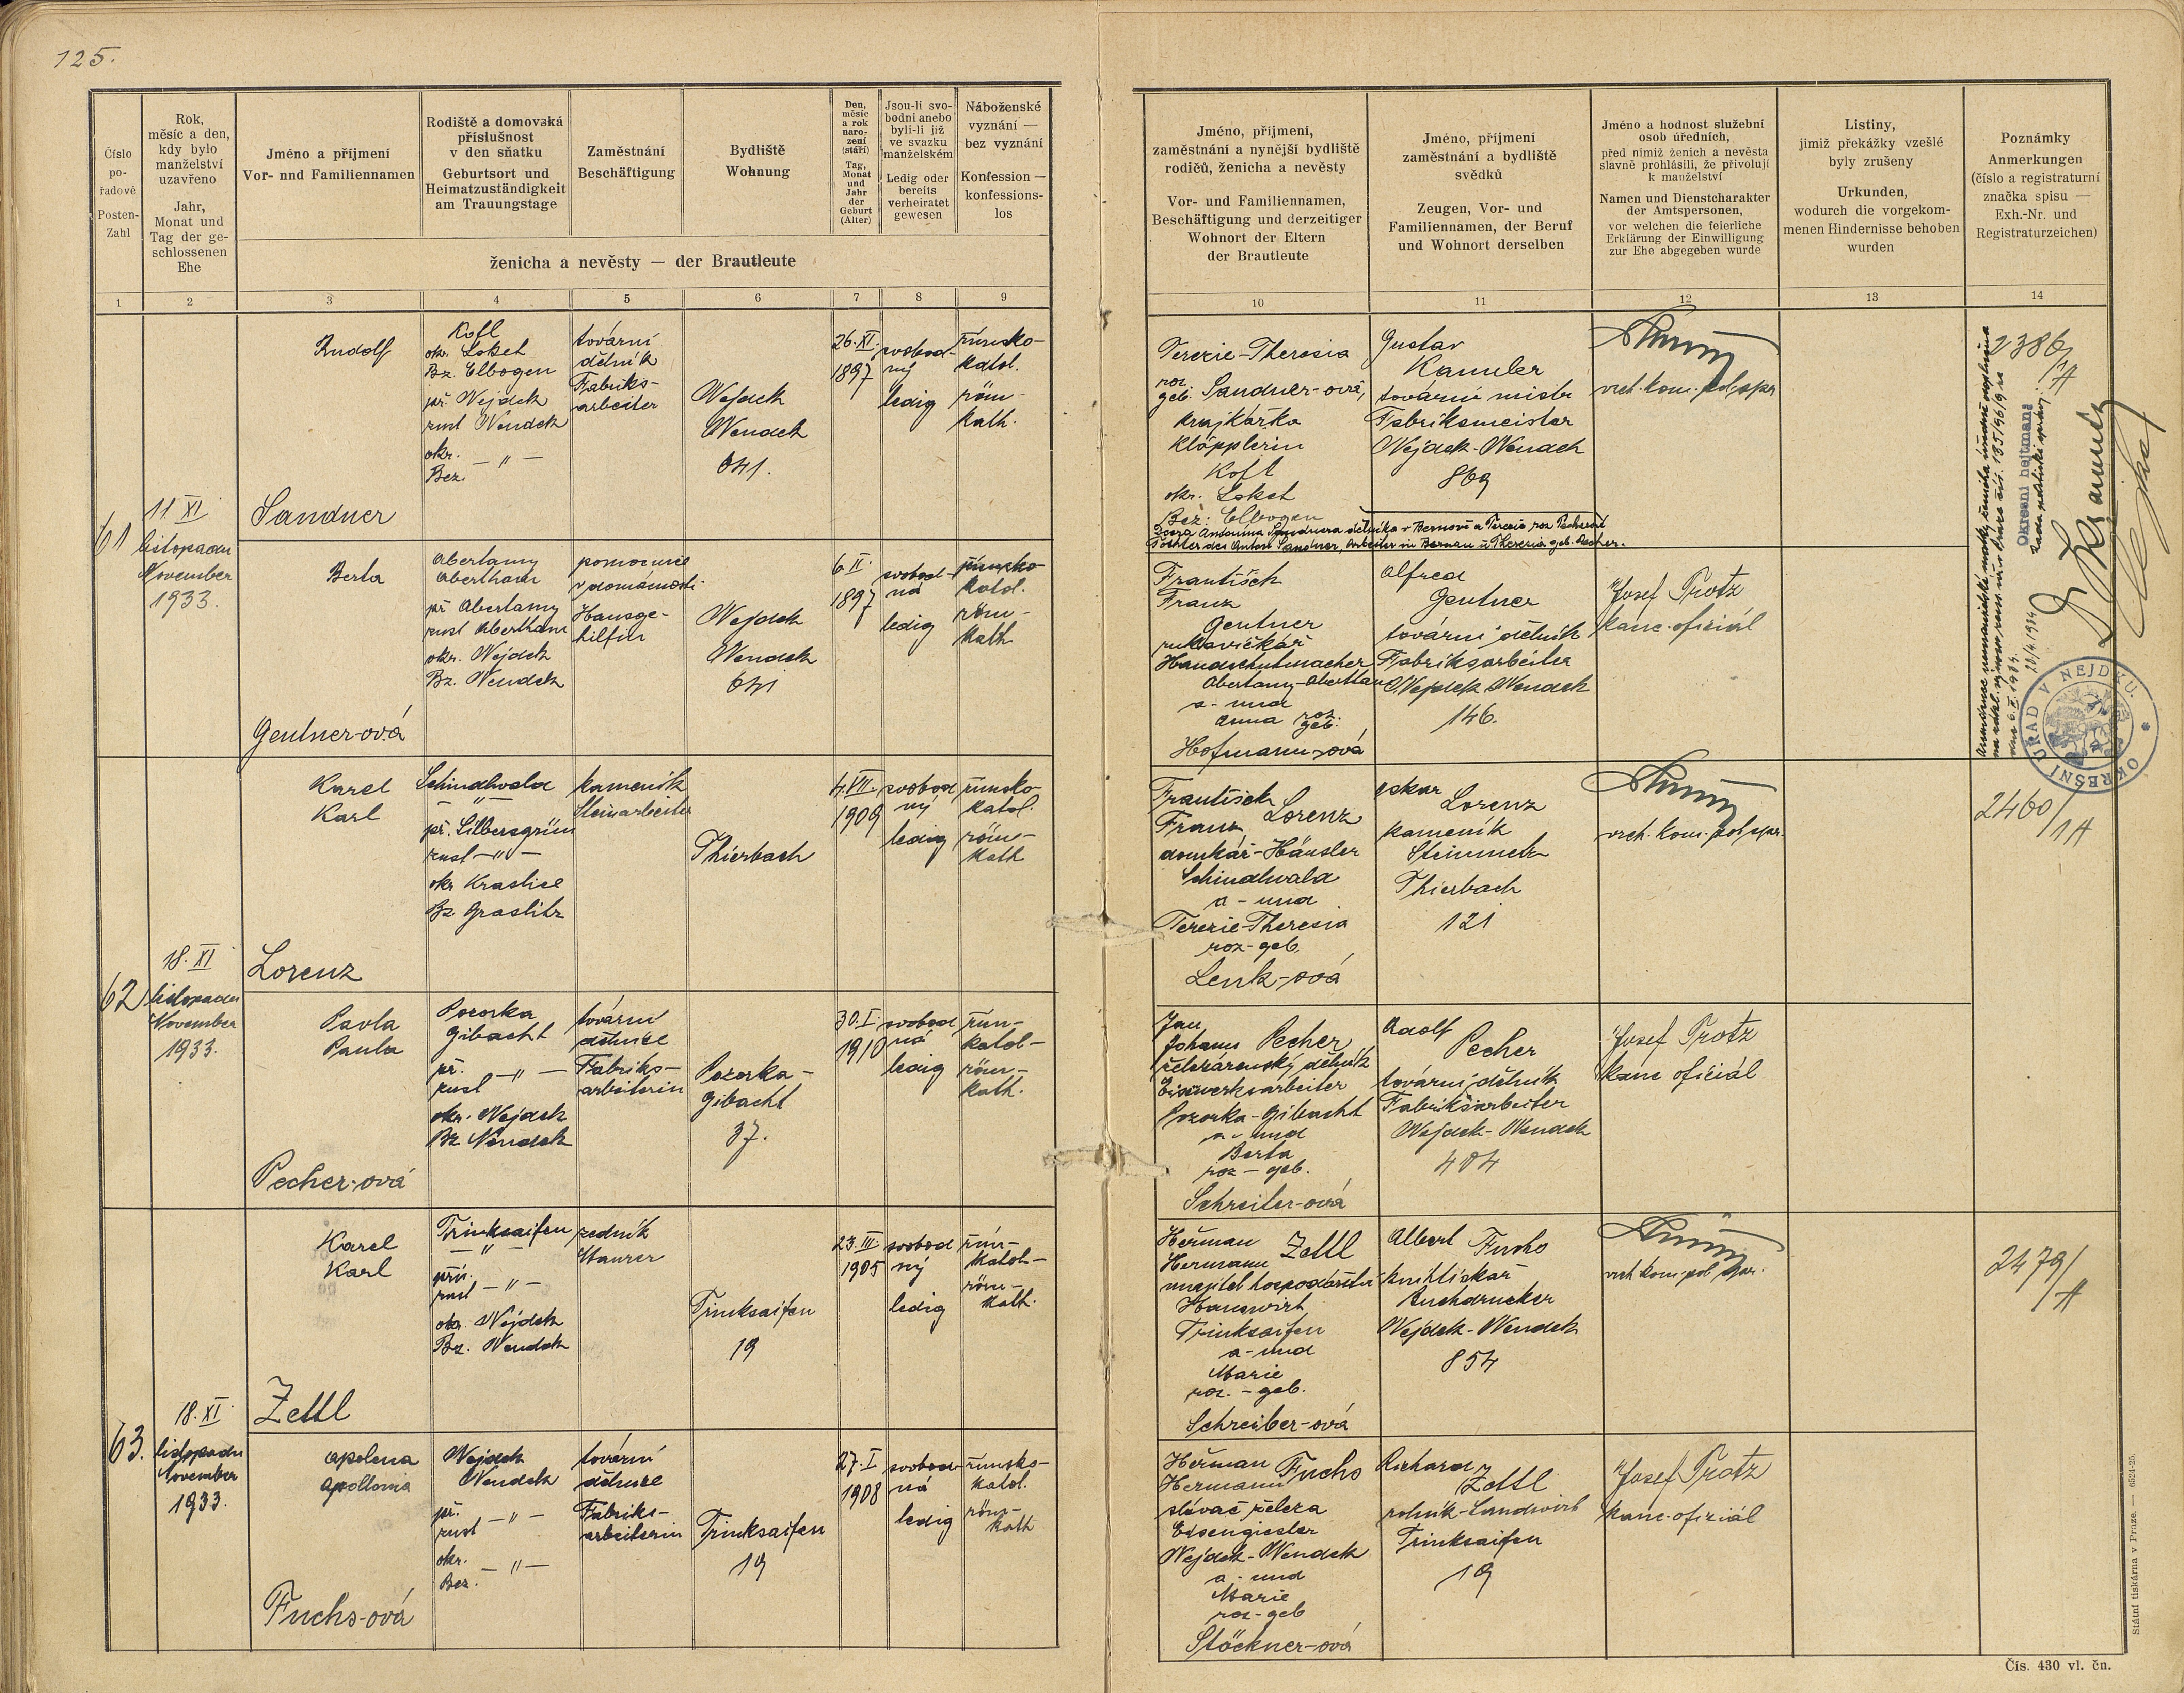 125.
Číslo
po-
řadové
Posten-
Zahl
Rok,
měsíc a den,
kdy bylo
manželství
uzavřeno
Jahr,
Monat und
Tag der ge-
schlossenen
Ehe
Jméno a příjmení
Vor- nnd Familiennamen
Rodiště a domovská
příslušnost
v den sňatku
Geburtsort und
Heimatzuständigkeit
am Trauungstage
Zaměstnání
Beschäftigung
Bydliště
Wohnung
Den,
měsíc
a rok
naro-
zení
(stáří)
Tag,
Monat
und
Jahr
der
Geburt
(Alter)
Jsou-li svo-
bodni anebo
byli-li již
ve svazku
manželském
Ledig oder
bereits
verheiratet
gewesen
Náboženské
vyznání —
bez vyznání
Konfession —
konfessions-
los
ženicha a nevěsty — der Brautleute
1 2 3 4 5 6 7 8 9
Jméno, příjmení,
zaměstnání a nynější bydliště
rodičů, ženicha a nevěsty
Vor- und Familiennamen,
Beschäftigung und derzeitiger
Wohnort der Eltern
der Brautleute
Jméno, příjmení
zaměstnání a bydliště
svědků
Zeugen, Vor- und
Familiennamen, der Beruf
und Wohnort derselben
Jméno a hodnost služební
osob úředních,
před nimiž ženich a nevěsta
slavně prohlásili, že přivolují
k manželství
Namen und Dienstcharakter
der Amtspersonen,
vor welchen die feierliche
Erklärung der Einwilligung
zur Ehe abgegeben wurde
Listiny,
jimiž překážky vzešlé
byly zrušeny
Urkunden,
wodurch die vorgekom-
menen Hindernisse behoben
wurden
Poznámky
Anmerkungen
(číslo a registraturní
značka spisu —
Exh.-Nr. und
Registraturzeichen)
10 11 12 13 14
61
11 XI
listopadu
November
1933.
Rudolf
Sandner
Kofl
okr. Loket
Bz. Elbogen
př. Nejdek
zust Neudek
okr.
Bez. — " —
tovární
dělník
Fabriks-
arbeiter
Nejdek
Neudek
641.
26. XI.
1897
svobod-
ný
ledig
římsko-
katol.
röm-
kath.
Terezie-Theresia
roz.
geb. Sandner-ová,
krajkářka
Klöpplerin
Kofl
okr. Loket
Bez: Elbogen
Dcera Antonína Sandnera dělníka v Bernově a Terezie roz Pecherové
Tochter des Anton Sandner, Arbeiter in Bernau u Theresia geb. Pecher.
Gustav
Kammler
tovární mistr
Fabriksmeister
Nejdek-Neudek
869
vrch. kom. pol. spr
2386/
1A
Okresní hejtman:
20/4 1934
OKRESNÍ ÚŘAD V NEJDKU.
Berta
Gentner-ová
Abertamy
Abertham
př Abertamy
zust Abertham
okr. Nejdek
Bz. Neudek
pomocnice
v domácnosti
Hausge-
hilfin
Nejdek
Neudek
641
6 II.
1897
svobod-
ná
ledig
římsko-
katol.
röm-
kath
František
Franz
Gentner
rukavičkář
Handschuhmacher
Abertamy-Abertham
a - und
Anna roz.
geb.
Hofmann-ová
Alfred
Gentner
tovární dělník
Fabriksarbeiter
Nejdek Neudek
146.
Josef Trotz
kanc. oficiál
62
18. XI
listopadu
November
1933.
Karel
Karl
Lorenz
Schindlwald
— " —
př. Silbersgrün
zust — " —
okr Kraslice
Bz Graslitz
kameník
Steinarbeiter
Thierbach
4. VII.
1909
svobod
ný
ledig
římsko
katol.
röm-
kath
František
Franz Lorenz
domkář-Häusler
Schindlwald
a - und
Terezie-Theresia
roz-geb.
Lenk-ová
Oskar
Lorenz
kameník
Steinmetz
Thierbach
121
vrch. kom. pol. spr.
2460/
1A
Pavla
Paula
Pecher-ová
Pozorka
Gibacht
př.
zust — " —
okr. Nejdek
Bz Neudek
tovární
dělnice
Fabriks-
arbeiterin
Pozorka-
Gibacht
37.
30. I.
1910
svobod
ná
ledig
řím-
katol-
röm-
kath.
Jan
Johann Pecher
železárenský dělník
Eisenwerksarbeiter
Pozorka-Gibacht
a - und
Berta
roz - geb.
Schreiter-ová
Adolf
Pecher
tovární dělník
Fabriksarbeiter
Nejdek-Neudek
404
Josef Trotz
kanc oficiál
63.
18. XI.
listopadu
November
1933.
Karel
Karl
Zettl
Trinksaifen
— " —
přís.
zust — " —
okr. Nejdek
Bz. Neudek
zedník
Maurer
Trinksaifen
19
23. III
1905
svobod
ný
ledig
řím-
katol-
röm-
kath.
Heřman
Hermann Zettl
majitel hospodářství
Hauswirt
Trinksaifen
a - und
Marie
roz. - geb.
Schreiber-ová
Albert Fuchs
knihtiskař
Buchdrucker
Nejdek-Neudek
854
vrch kom. pol. spr.
2479/
1A
Apolena
Apollonia
Fuchs-ová
Nejdek
Neudek
př.
zust — " —
okr.
Bez. — " —
tovární
dělnice
Fabriks-
arbeiterin
Trinksaifen
19
27. I
1908
svobod-
ná
ledig
římsko-
katol.
röm-
kath
Heřman
Hermann Fuchs
slévač železa
Eisengiesser
Nejdek-Neudek
a - und
Marie
roz-geb
Stöckner-ová
Richard
Zettl
rolník-Landwirt
Trinksaifen
19
Josef Trotz
kanc. oficiál
Státní tiskárna v Praze. — 6524-25.
Čís. 430 vl. čn.